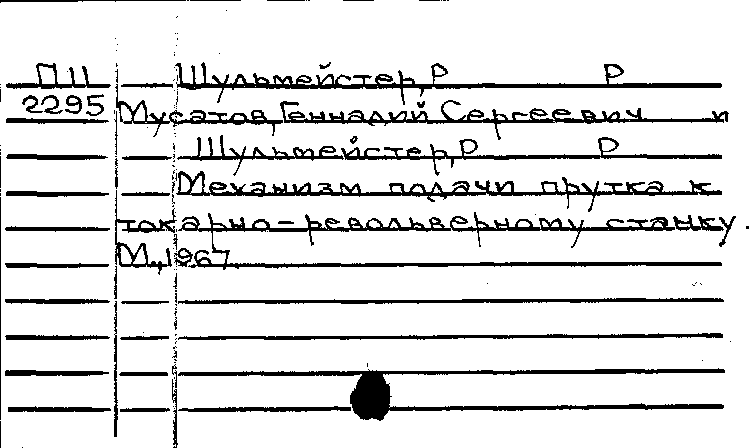 П11 Шульмейстер, Р Р
2295 Мусатов, Геннадий Сергеевич и
Шульмейстер, Р Р
Механизм подачи прутка к
токарно-револьверному станку.
М., 1967